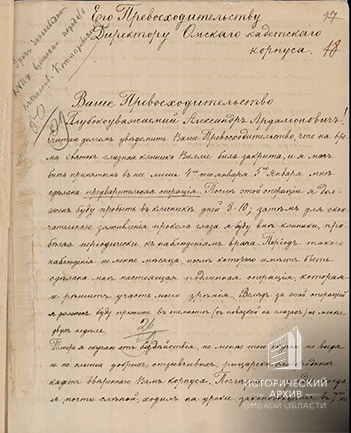 Его Превосходительству
Директору Омскаго кадетскаго
корпуса.
Ваше Превосходительство
Глубокоуважаемый Александръ Ардалионовичъ!
Считаю долгомъ увѣдомить Ваше Превосходительство, что на вре
мя святокъ глазная клиника была закрыта, и я могъ
быть принятымъ въ нее лишь 4го января. 5го января мнѣ
сдѣлана предварительная операція. Послѣ этой операціи я дол
женъ буду пробыть въ клиникѣ дней 8-10; затѣмъ для окон
чательнаго заживленія прокола глаза я буду внѣ клиники, при
бывая періодически къ наблюденіямъ врача. Періодъ такого
наблюденія не менѣе мѣсяца, послѣ котораго имѣетъ быть
сдѣлана мнѣ настоящая подлинная операція, которая
и рѣшитъ участь моего зрѣнія. Вслѣдъ за этой операціей
я долженъ буду лежать въ (съ повязкой на глазахъ) не менѣе
двухъ недѣль.
Теперь я скучаю отъ бездѣйствія, не менѣе того скучаю не видя
и не слыша добрыхъ, отзывчивыхъ, рыцарски
кадетъ ввѣреннаго Вамъ корпуса. когда
я почти слѣпой ходилъ на уроки
ИСТОРИЧЕСКИЙ
АРХИВ
ОМСКОЙ ОБЛАСТИ